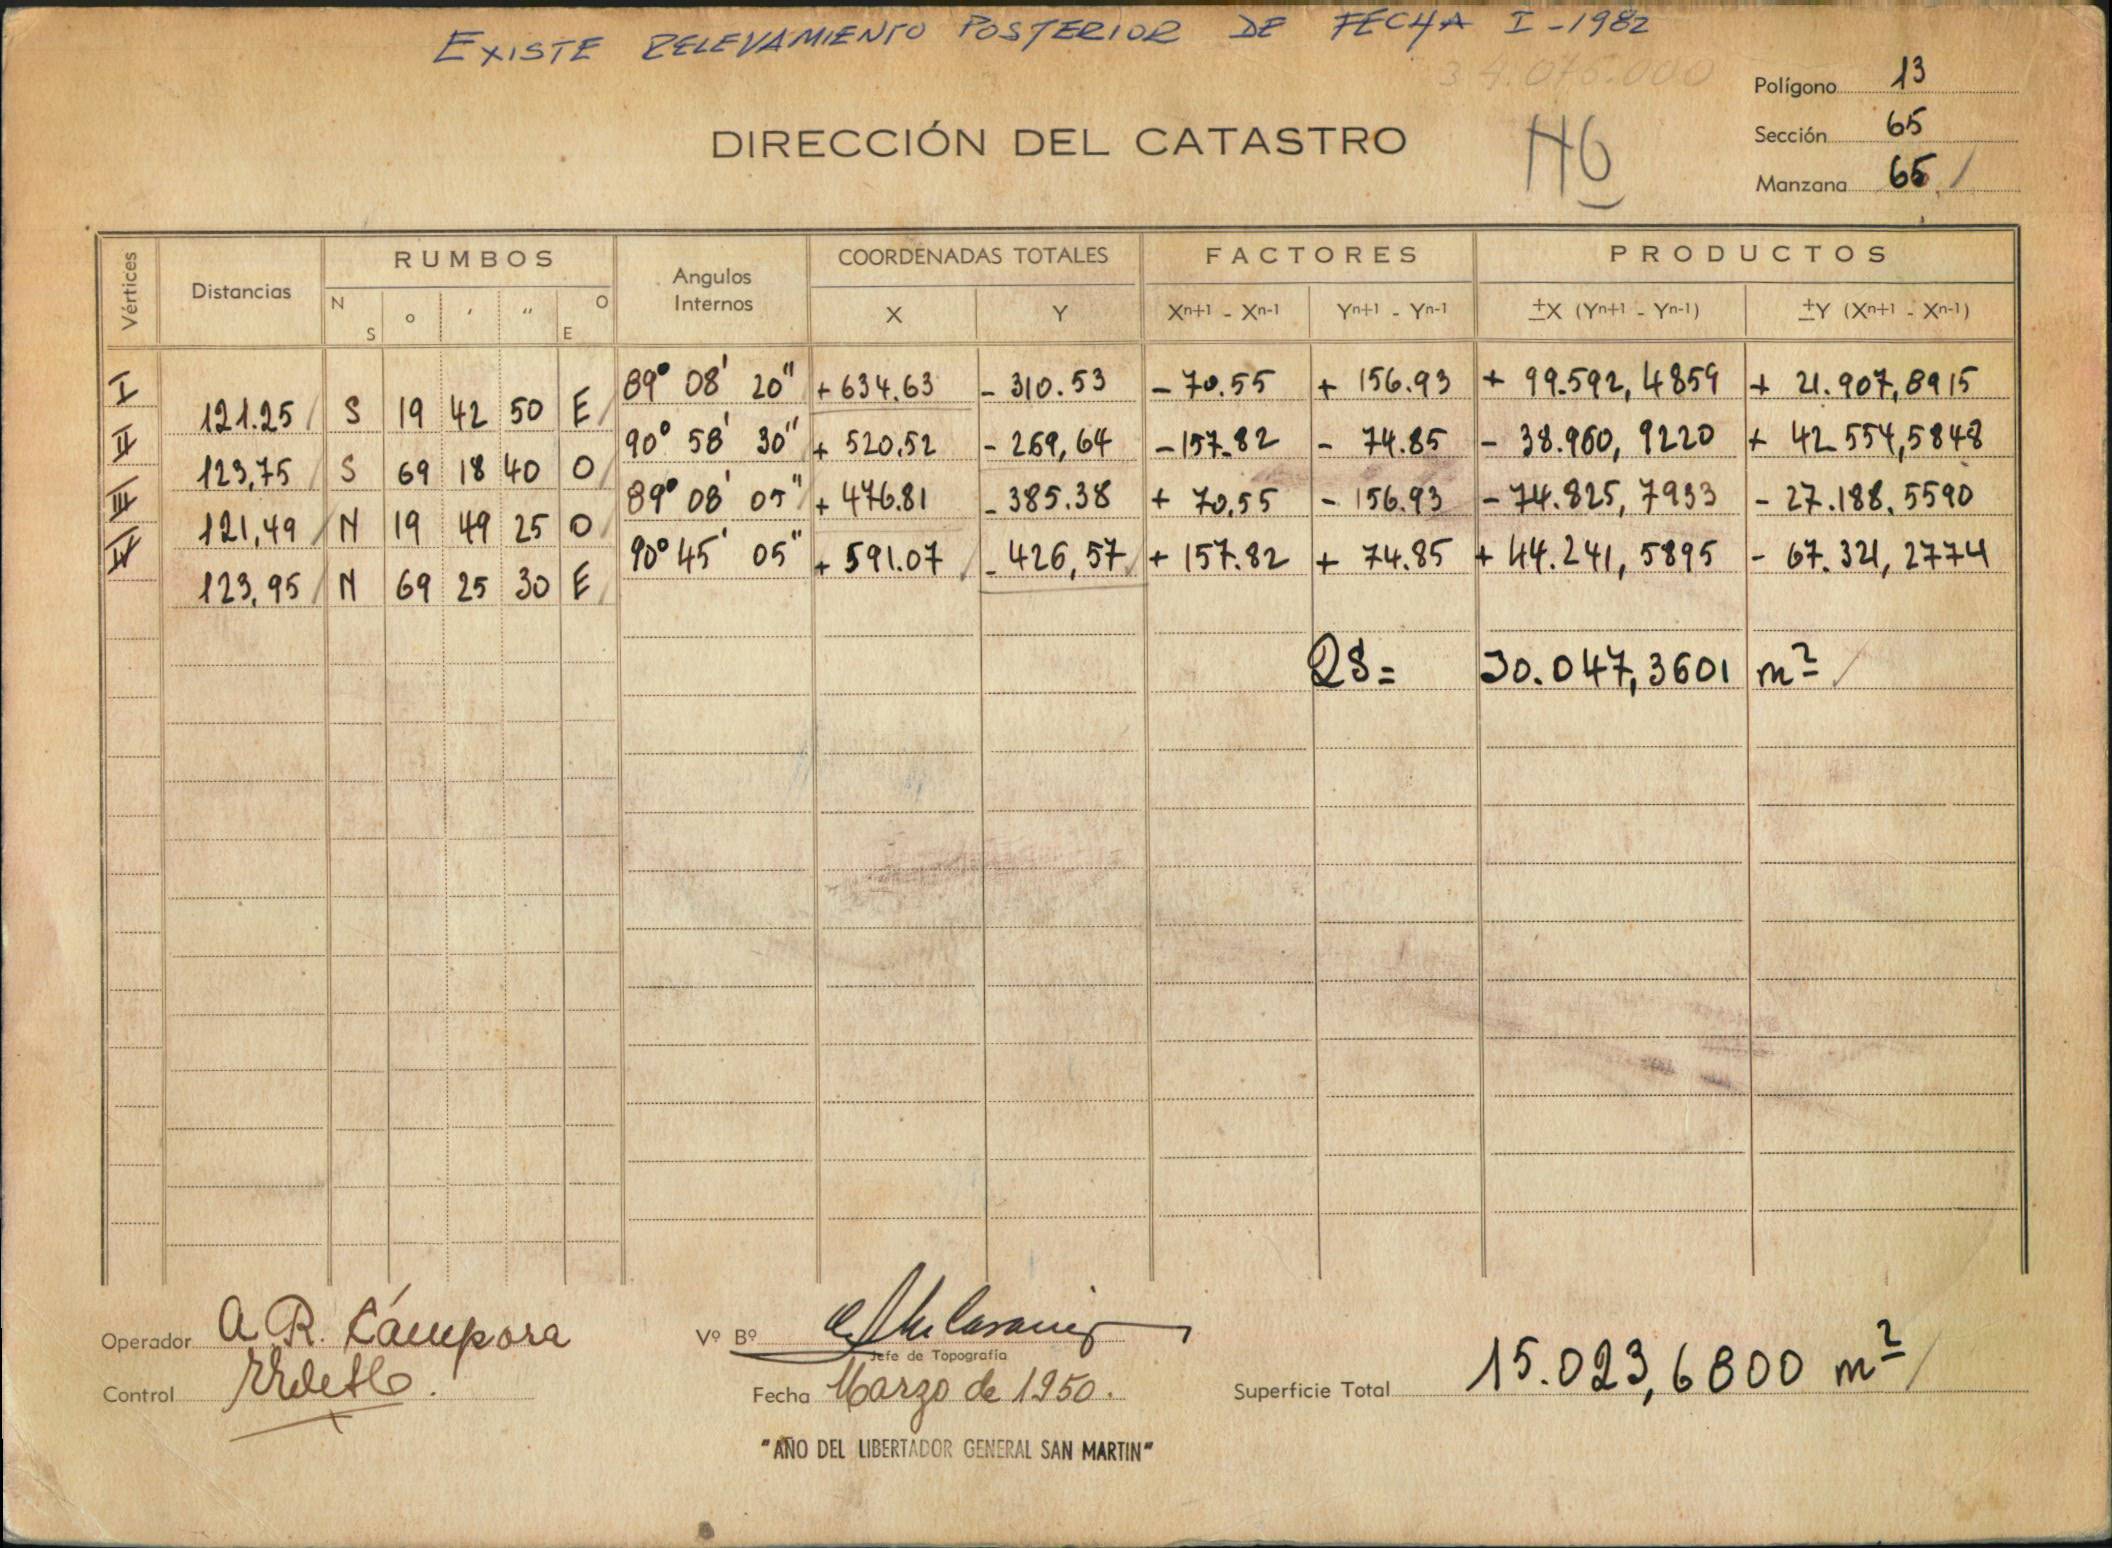 EXISTE RELEVAMIENTO POSTERIOR DE FECHA I-1982
34.076.000
Polígono 13
DIRECCIÓN DEL CATASTRO
H6
Sección 65
Manzana 65
Vértices Distancias RUMBOS Angulos Internos COORDENADAS TOTALES FACTORES PRODUCTOS
N S ° ' " O E X Y Xn+1 - Xn-1 Yn+1 - Yn-1 ±X (Yn+1 - Yn-1) ±Y (Xn+1 - Xn-1)
I 89° 08' 20" + 634.63 - 310.53 - 70.55 + 156.93 + 99.592,4859 + 21.907,8915
121.25 S 19 42 50 E
II 90° 58' 30" + 520.52 - 269,64 - 157.82 - 74.85 - 38.960,9220 + 42 554,5848
123,75 S 69 18 40 O
III 89° 08' 05" + 476.81 - 385.38 + 70,55 - 156.93 - 74.825,7933 - 27.188.5590
121,49 N 19 49 25 O
IV 90° 45' 05" + 591.07 - 426,57 + 157.82 + 74.85 + 44.241,5895 - 67.321,2774
123,95 N 69 25 30 E
2S = 30.047,3601 m2
Operador A. R. Cámpora
Vº Bº
Jefe de Topografía
Control
Fecha Marzo de 1950.
Superficie Total 15.023,6800 m2
"AÑO DEL LIBERTADOR GENERAL SAN MARTIN"